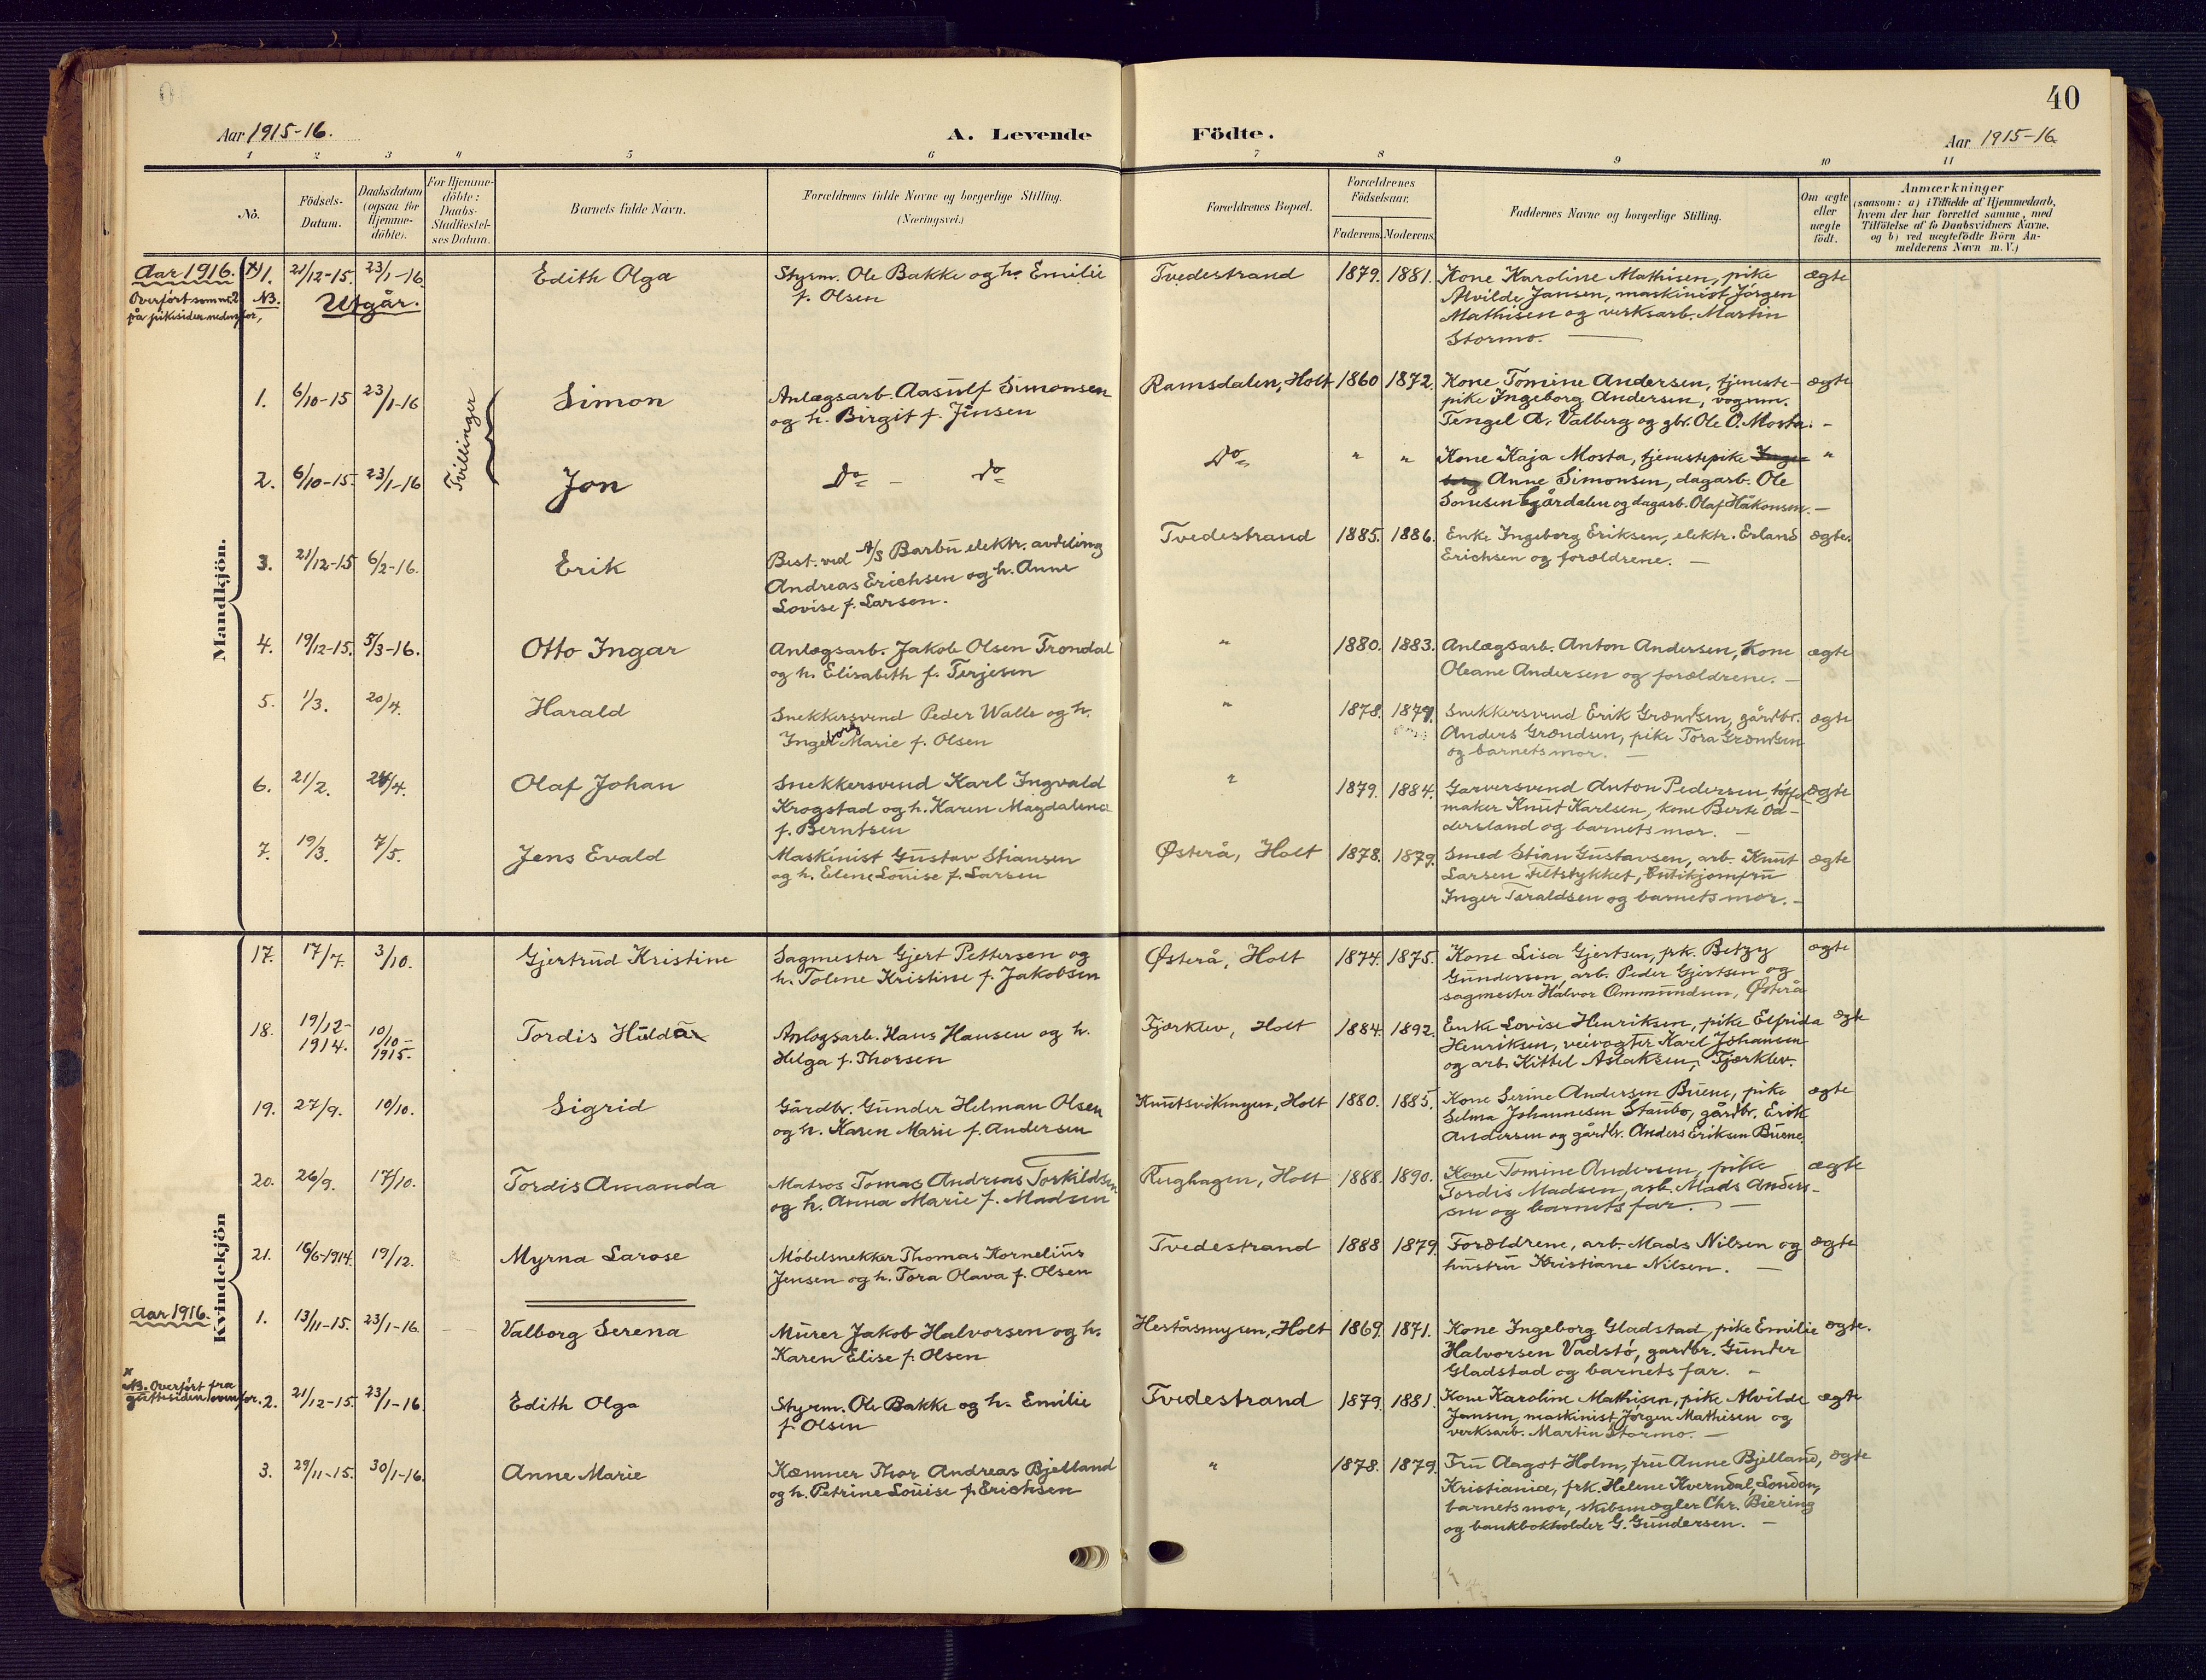 40
Aar 1915-16.
A. Levende Födte.
Aar 1915-16
1 2 3 4 5 6 7 8 9 10 11
No.
Födsels-
Datum.
Daabsdatum
(ogsaa for
Hjemme-
döbte).
For Hjemme-
döbte:
Daabs-
Stadfæstel-
ses Datum.
Barnets fulde Navn.
Forældrenes fulde Navne og borgerlige Stilling.
(Næringsvei.)
Forældrenes Bopæl.
Forældrenes
Födselsaar.
Faderens. Moderens.
Faddernes Navne og borgerlige Stilling.
Om ægte
eller
uægte
födt.
Anmærkninger
(saasom: a) i Tilfælde af Hjemmedaab,
hvem der har forrettet samme, med
Tilföielse af to Daabsvidners Navne,
og b) ved uægtefödte Börn An-
melderens Navn m. V.)
Mandkjön.
Aar 1916.
Overført som nr. 2
på pikesiden nedenfor,
x) 1. 21/12-15. 23/1-16.
NB. Utgår.
Edith Olga
Styrm. Ole Bakke og h. Emilie
f. Olsen
Tvedestrand 1879. 1881.
Kone Karoline Mathisen, pike
Alvilde Jansen, maskinist Jørgen
Mathisen og verksarb. Martin
Stormo.
ægte
1. 6/10-15 23/1-16
Tvillinger
Simon
Anlægsarb. Aasulf Simonsen
og h. Birgit f. Jensen
Ramsdalen, Holt 1860 1872.
Kone Tomine Andersen, tjeneste-
pike Ingeborg Andersen, vognm.
Tengel A. Valberg og gbr. Ole O. Mosta. -
ægte
2. 6/10-15. 23/1-16
Jon
Do - Do
Do " "
Kone Kaja Mosta, tjenestepike Inge-
borg Anne Simonsen, dagarb. Ole
Simesen Egårdalen og dagarb. Olaf Håkonsen. -
"
3. 21/12-15 6/2-16.
Erik
Best. ved A/S Barbu elektr. avdeling
Andreas Erichsen og h. Anne
Lovise f. Larsen.
Tvedestrand 1885. 1886.
Enke Ingeborg Eriksen, elektr. Erland
Erichsen og forældrene. -
ægte.
4. 19/12-15. 5/3-16.
Otto Ingar
Anlægsarb. Jakob Olsen Trondal
og h. Elisabeth f. Terjesen
" 1880. 1883.
Anlægsarb. Anton Andersen, Kone
Oleane Andersen og forældrene. -
ægte
5. 1/3. 20/4.
Harald
Snekkersvend Peder Walle og h.
Ingeborg Marie f. Olsen
" 1878. 1879.
Snekkersvend Erik Grændsen, gårdbr.
Anders Grændsen, pike Tora Grændsen
og barnets mor. -
ægte
6. 21/2. 24/4.
Olaf Johan
Snekkersvend Karl Ingvald
Krogstad og h. Karen Magdalena
f. Berntsen
" 1879. 1884.
Garversvend Anton Pedersen, tøffel-
maker Knut Karlsen, kone Berte Od-
dersland og barnets mor. -
ægte
7. 19/3. 7/5.
Jens Evald
Maskinist Gustav Stiansen
og h. Elene Louise f. Larsen
Østerå, Holt 1878. 1879.
Smed Stian Gustavsen, arb. Knut
Larsen Feltstykket, butikjomfru
Inger Taraldsen og barnets mor. -
ægte
Kvindekjön
17. 17/7. 3/10.
Gjertrud Kristine
Sagmester Gjert Pettersen og
h. Tolene Kristine f. Jakobsen
Østerå, Holt 1874. 1875.
Kone Lisa Gjertsen, frk. Betzy
Gundersen, arb. Peder Gjertsen og
sagmester Halvor Ommundsen, Østerå
ægte
18. 19/12-
1914. 10/10-
1915.
Tordis Huldar
Anlægsarb. Hans Hansen og h.
Helga f. Thorsen
Fjærklev, Holt 1884. 1892.
Enke Lovise Henriksen, pike Elfrida
Henriksen, veivogter Karl Johansen
og arb. Kittel Aslaksen, Fjærklev.
ægte
19. 27/9. 10/10.
Sigrid
Gårdbr. Gunder Helman Olsen
og h. Karen Marie f. Andersen
Knutsvikmyen, Holt 1880. 1885.
Kone Serine Andersen Buene, pike
Selma Johannesen Staubo, gårdbr. Erik
Andersen og gårdbr. Anders Eriksen Buene.
ægte
20. 26/9. 17/10.
Tordis Amanda
Matros Tomas Andreas Torkildsen
og h. Anna Marie f. Madsen
Rughagen, Holt 1888. 1890.
Kone Tomine Andersen, pike
Tordis Madsen, arb. Mads Anders-
sen og barnets far. -
ægte
21. 16/6-1914. 19/12.
Myrna Larose
Møbelsnekker Thomas Kornelius
Jensen og h. Tora Olava f. Olsen
Tvedestrand 1888 1879.
Forældrene, arb. Mads Nilsen og
hustru Kristiane Nilsen. -
ægte
Aar 1916.
1. 13/11-15. 23/1-16.
Valborg Serena
Murer Jakob Halvorsen og h.
Karen Elise f. Olsen
Heståsmyren, Holt 1869. 1871.
Kone Ingeborg Gladstad, pike Emilie
Halvorsen Vadstø, gardbr. Gunder
Gladstad og barnets far. -
ægte.
x
NB. Overført fra
guttesiden ovenfor.
2. 21/12-15. 23/1-16.
Edith Olga
Styrm. Ole Bakke og h. Emilie
f. Olsen
Tvedestrand 1879. 1881.
Kone Karoline Mathisen, pike Alvilde
Jansen, maskinist Jørgen Mathisen og
verksarb. Martin Stormo. -
ægte
3. 29/11-15. 30/1-16.
Anne Marie
Kæmner Thor Andreas Bjelland
og h. Petrine Louise f. Erichsen
" 1878. 1879.
Fru Aagot Holm, fru Anne Bjelland,
Kristiania, frk. Helene Kverndal, London,
barnets mor, skibsmægler Chr. Biering
og bankbokholder G. Gundersen. -
ægte